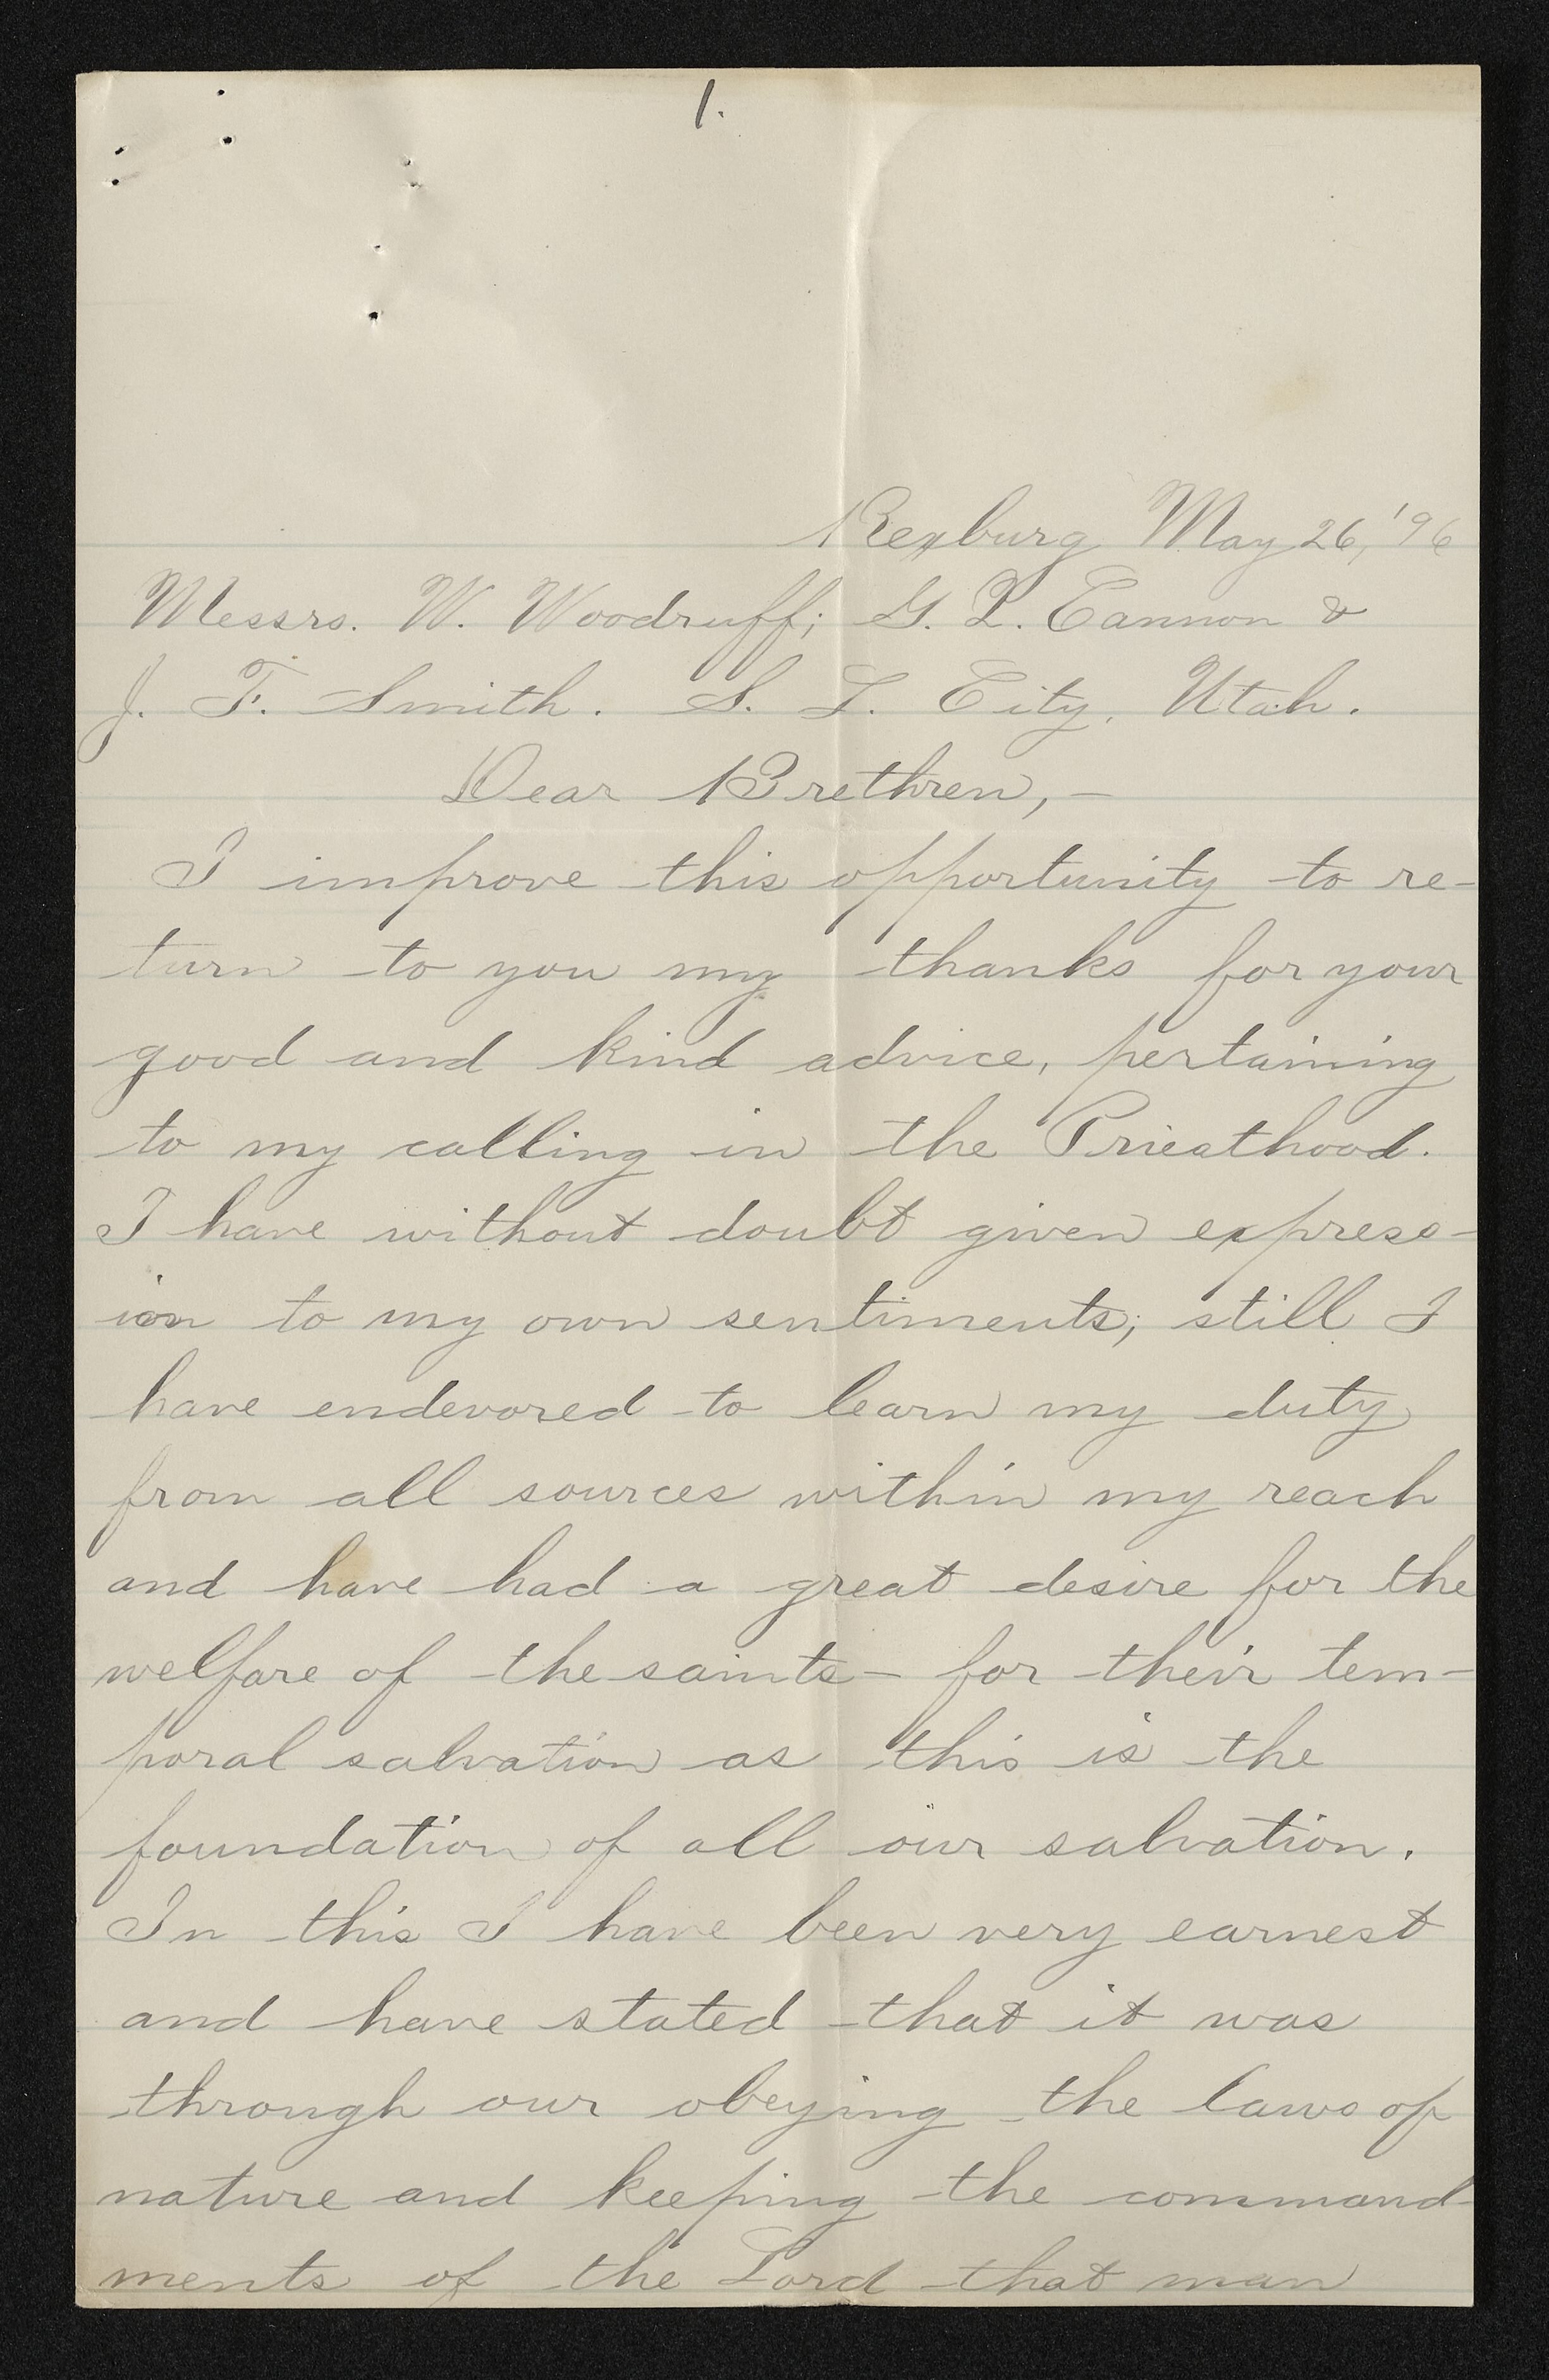 1.
Rexburg May 26, '96
Messrs. W. Woodruff; G. Q. Cannon &
J. F. Smith. S. L. City, Utah.
Dear Brethren,-
I improve this opportunity to re-
turn to you my thanks for your
good and kind advice, pertaining
to my calling in the Priesthood.
I have without doubt given express-
ion to my own sentiments; still I
have endevored to learn my duty
from all sources within my reach
and have had a great desire for the
welfare of the saints - for their tem-
poral salvation as this is the
foundation of all our salvation.
In this I have been very earnest
and have stated that it was
through our obeying the laws of
nature and keeping the command-
ments of the Lord that man